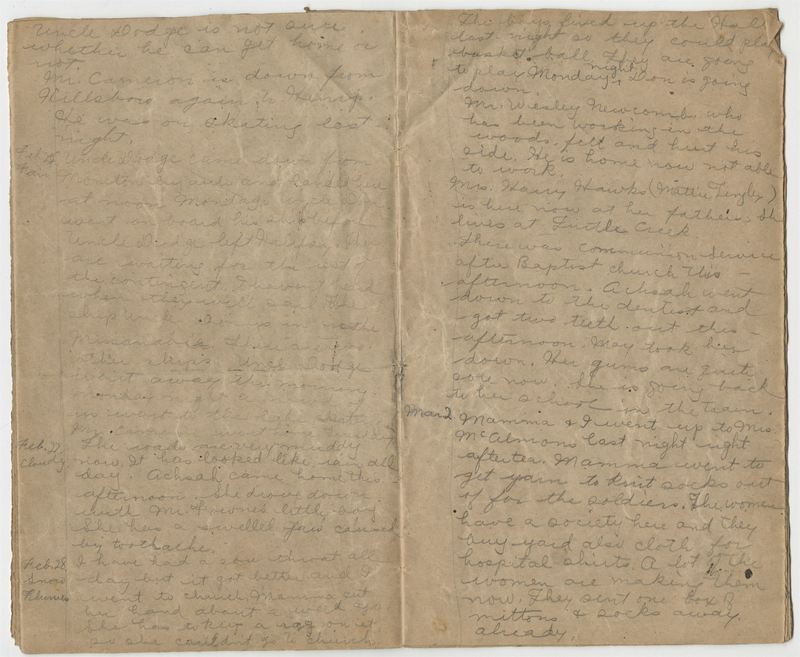 Uncle Dodge is not sure
whether he can get home or
not.
Mr. Cameron is down from
Hillsboro again
He was on skating last
night.
Uncle Dodge came down from
Moncton
at noon Monday. Uncle
went on board his ship before
Uncle Dodge left Halifax. They
are waiting for the rest of
the contingent. I haven't heard
when they will sail. The
ship Uncle is in is the
Missanabie. There are
other ships. Uncle Dodge
went away this morning.
Monday night a crowd of
us went to the lake skating.
Mr. Cameron
Feb. 27 The roads are very muddy
Cloudy now. It has looked like rain all
day. Achsah came home this
afternoon. She drove down
with Mr. little boy
She has a swelled face caused
by toothache.
Feb. 28 I have had a sore throat all
Snow day but it got better and I
Flurries went to church. Mamma cut
her hand about a week ago.
She has to keep a rag on it
so she couldn't go to church.
The boys fixed up the Hall
last night so they could play
basket ball. They are going
to play Monday night. Don is going
down.
Mr. Wesley Newcomb, who
has been working in the
woods, fell and hurt his
side. He is home now not able
to work.
Mrs. Harry Hawks (Mattie Tingley)
is here now at her fathers. She
lives at Turtle Creek
There was communion service
after Baptist church this
afternoon. Achsah went
down to the dentist and
got two teeth out this
afternoon. May took her
down. Her gums are quite
sore now. She is going back
to her school on the train.
Mar 2 Mamma & I went up to Mrs.
McAlmons last night right
after tea. Mamma went to
get yarn to knit socks out
of for the soldiers. The women
have a society here and they
buy yard also cloth for
hospital shirts. A lot of the
women are making them
now. They sent one box of
mittons & socks away
already.